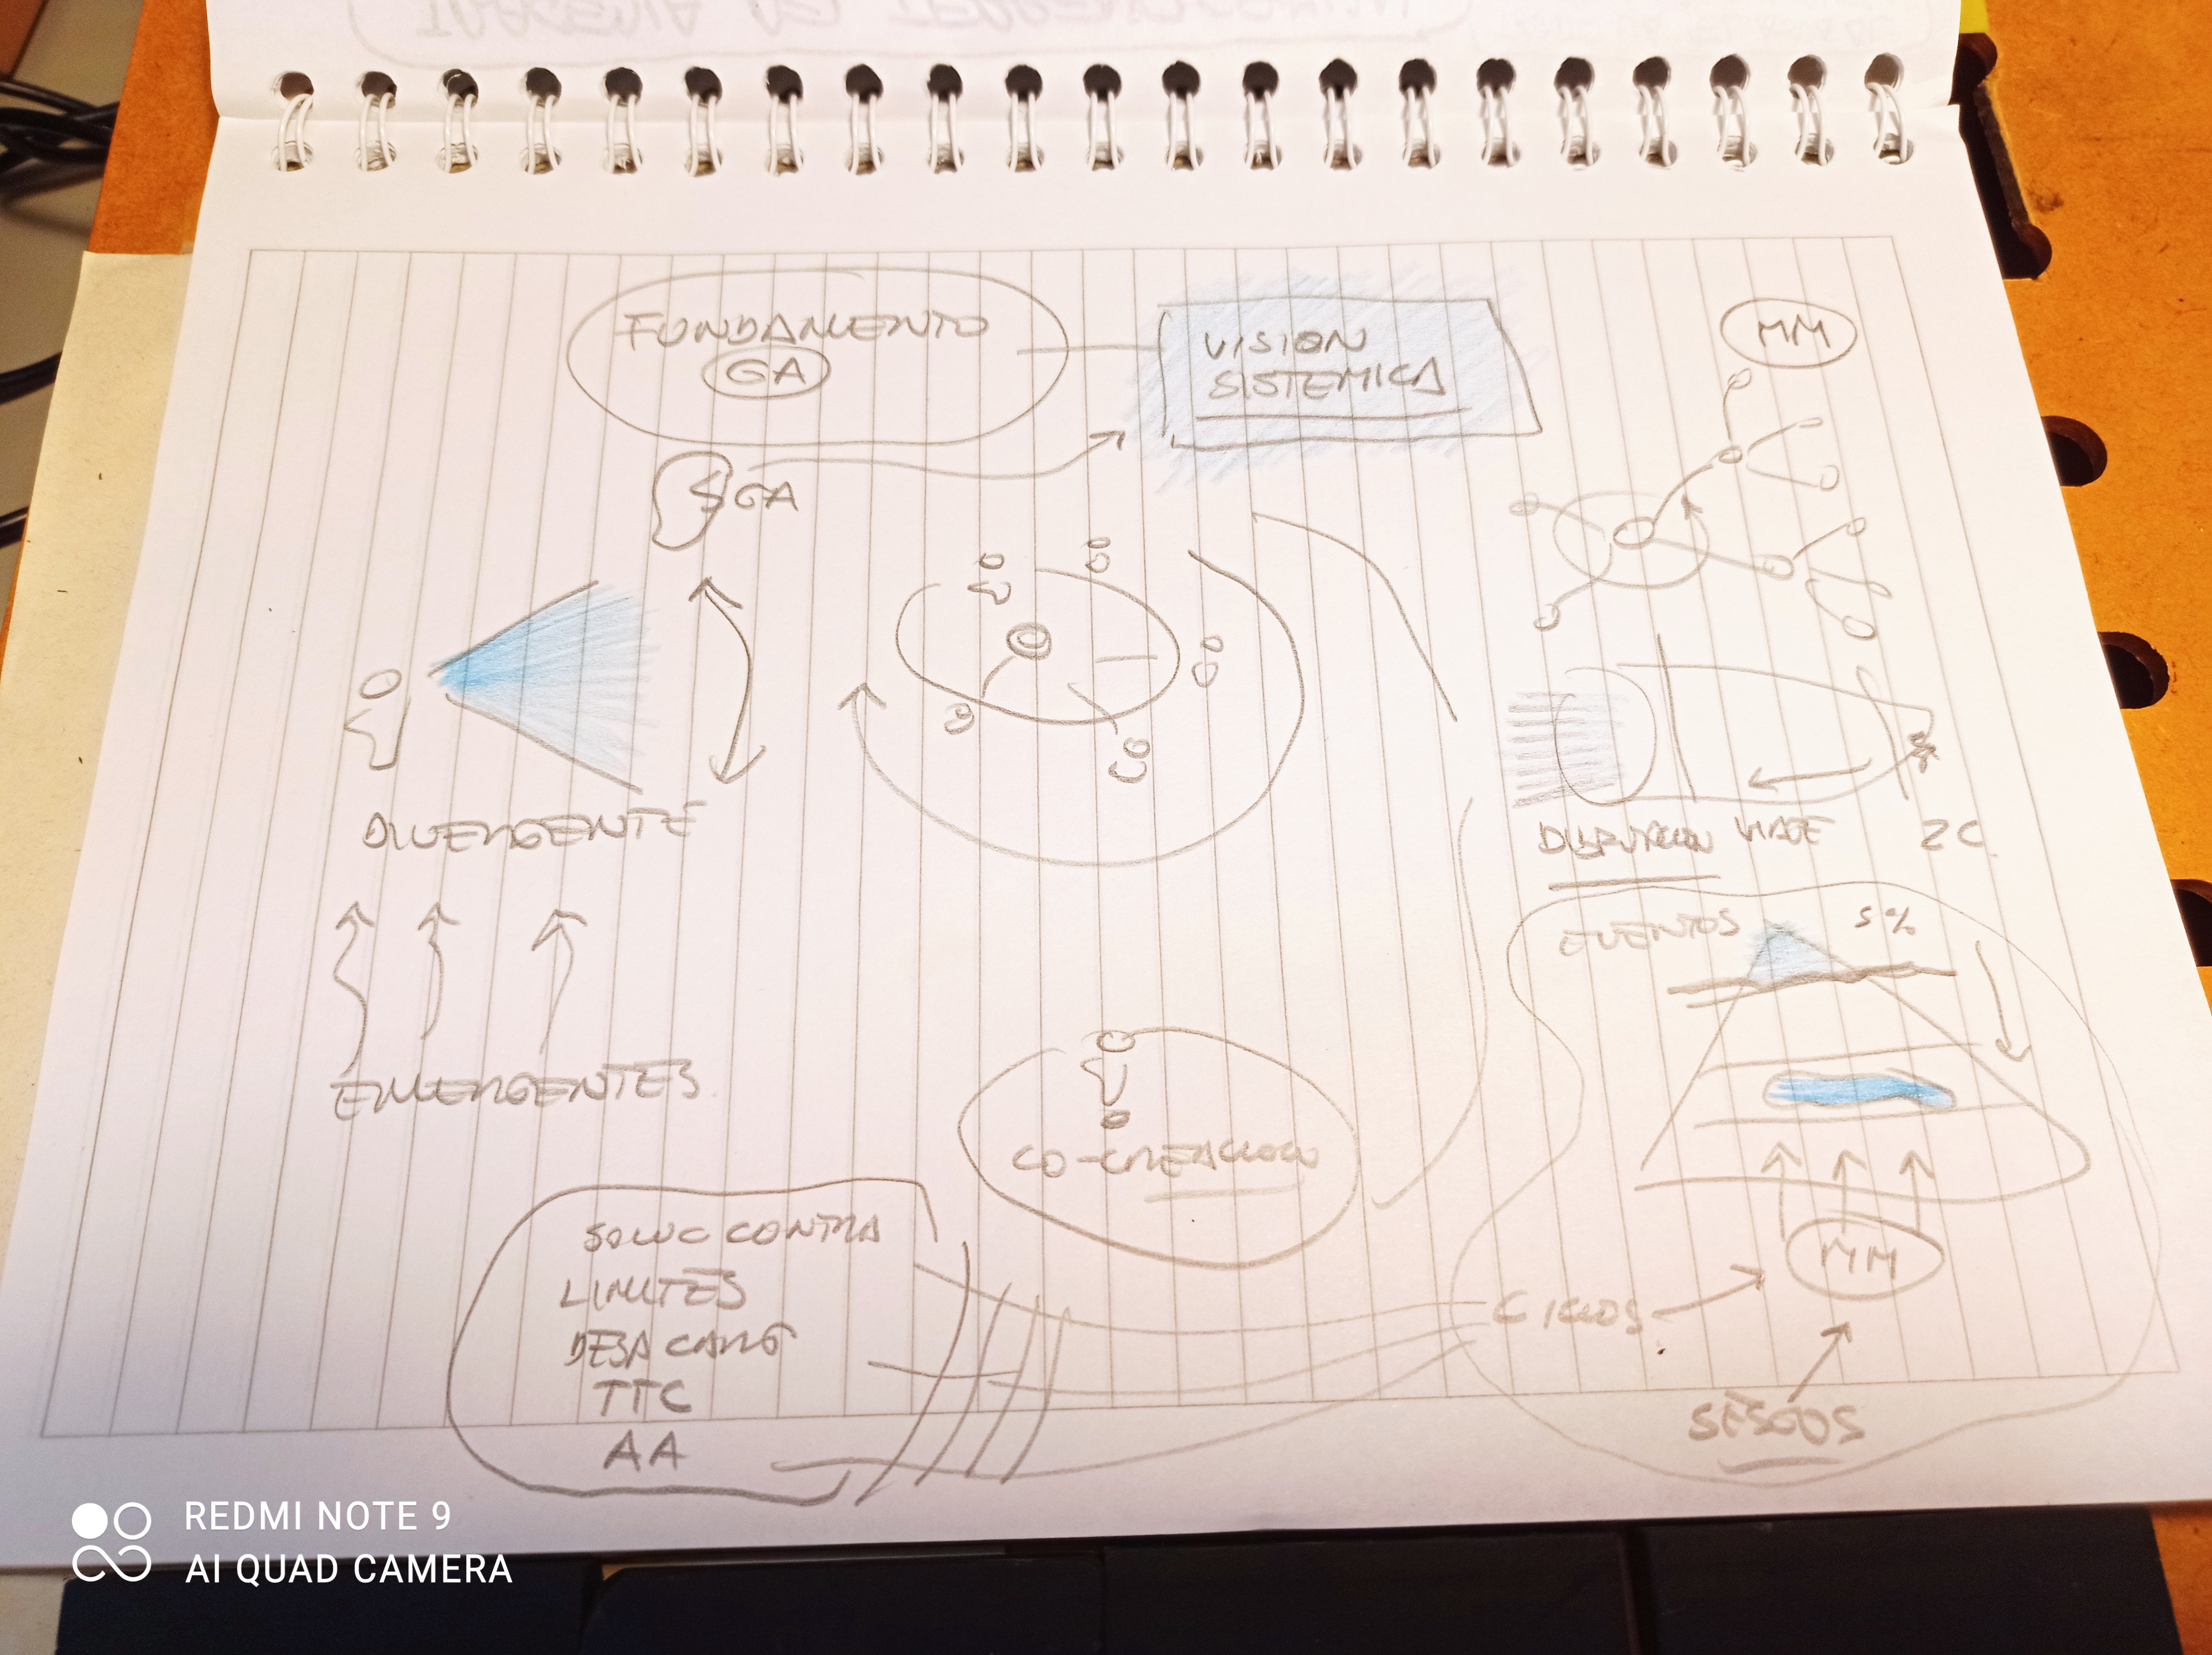 FUNDAMENTO
GA
VISION
SISTEMICA
MM
GA
DIVERGENTE
EMERGENTES
VIAJE
ZC
EVENTOS 5%
CO-CREACION
MM
CICLOS
SESGOS
SOLUC CONTRA
LIMITES
DESA CANG
TTC
AA
REDMI NOTE 9
AI QUAD CAMERA